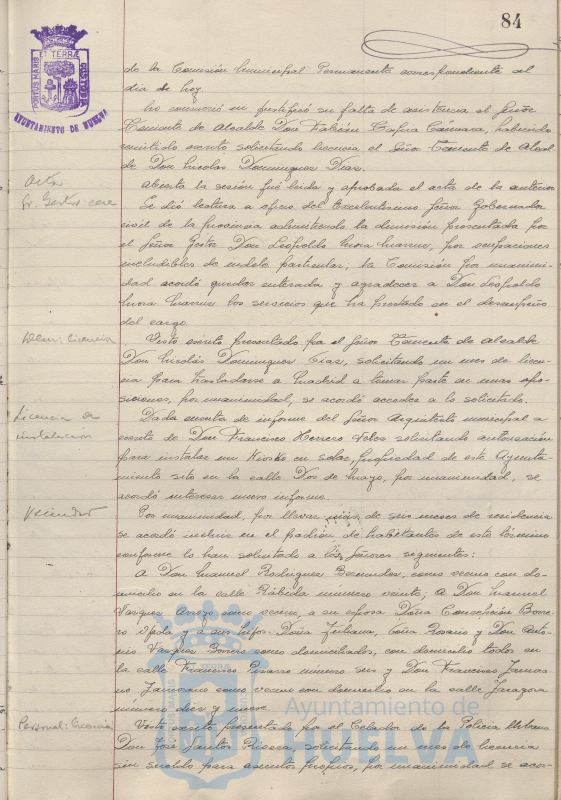 84
PORTUS MARIS ET TERRAE CUSTODIA
AYUNTAMIENTO DE HUELVA
de la Comisión Municipal Permanente correspondiente al
día de hoy.
No concurrió ni justificó su falta de asistencia el Señor
Teniente de Alcalde Don Fabián Cámara, habiendo
remitido escrito solicitando licencia el Señor Teniente de Alcal-
de Don Nicolás Dominguez Diaz.
Acta
Abierta la sesión fué leida y aprobada el acta de la anterior.
Sr. Gestor cese
Se dió lectura a oficio del Excelentisimo Señor Gobernador
civil de la provincia admitiendo la dimisión presentada por
el Señor Gestor Don Leopoldo, por ocupaciones
ineludibles de indole particular, la Comisión por unanimi-
dad acordó quedar enterada y agradecer a Don Leopoldo
los servicios que ha prestado en el desempeño
del cargo.
Idem: licencia
Visto escrito presentado por el Señor Teniente de Alcalde
Don Nicolás Dominguez Diaz, solicitando un mes de licen-
cia para trasladarse a Madrid a tomar parte en unas opo-
siciones, por unanimidad, se acordó acceder a lo solicitado.
Licencia de
instalación
Dada cuenta de informe del Señor Arquitecto municipal a
escrito de Don Francisco Herrero solicitando autorización
para instalar un Kiosko en solar, propiedad de este Ayunta-
miento sito en la calle Dos de Mayo, por unanimidad, se
acordó interesar nuevo informe.
Vecindad
Por unanimidad, por llevar más de seis meses de residencia
se acordó incluir en el padrón de habitantes de este término
conforme lo han solicitado a los Señores siguientes:
A Don Manuel Rodriguez Bermudez, como vecino con do-
micilio en la calle Rábida número veinte; a Don Manuel
Vazquez Arroyo como vecino, a su esposa Doña Concepción Borre-
ro y a sus hijos Doña Juliana, Doña Rosario y Don Anto-
nio Vazquez Borrero como domiciliados, con domicilio todos en
la calle Francisco Pizarro número seis y Don Francisco Zamora-
no Zamorano como vecino con domicilio en la calle Zaragoza
número diez y nueve.
Personal: licencia
Visto escrito presentado por el Celador de la Policia Urbana
Don José Santos, solicitando un mes de licencia
sin sueldo para asuntos propios, por unanimidad se acor-
Ayuntamiento de
HUELVA